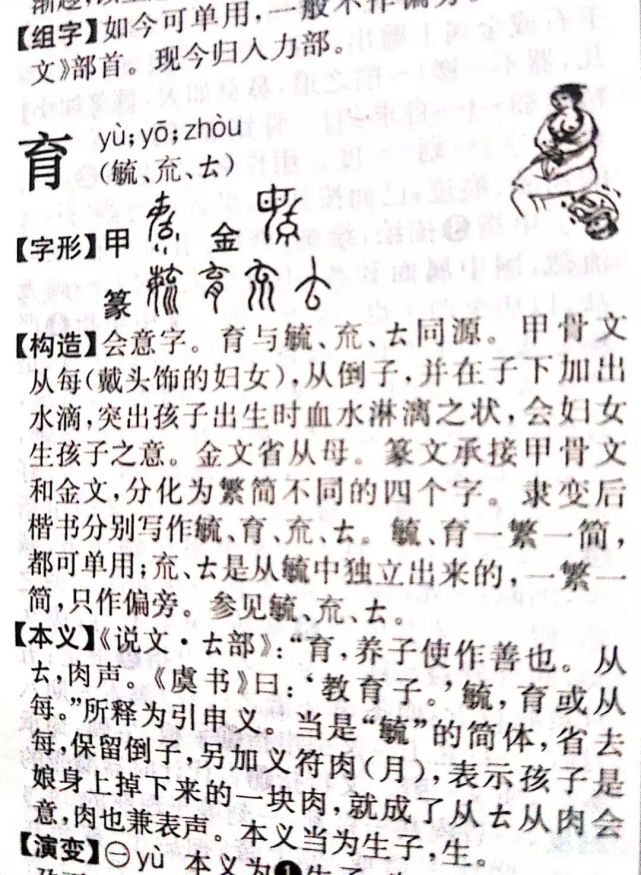 【组字】如今可单用,一般不作偏旁
文》部首。现今归入力部。
育 yù;yō;zhòu
(毓、㐬、𠫓)
【字形】甲 金
篆
【构造】会意字。育与毓、㐬、𠫓同源。甲骨文
从每(戴头饰的妇女),从倒子,并在子下加出
水滴,突出孩子出生时血水淋漓之状,会妇女
生孩子之意。金文省从母。篆文承接甲骨文
和金文,分化为繁简不同的四个字。隶变后
楷书分别写作毓、育、㐬、𠫓。毓、育一繁一简,
都可单用;㐬、𠫓是从毓中独立出来的,一繁一
简,只作偏旁。参见毓、㐬、𠫓。
【本义】《说文·𠫓部》:“育,养子使作善也。从
𠫓,肉声。《虞书》曰:‘教育子。’毓,育或从
每。”所释为引申义。当是“毓”的简体,省去
每,保留倒子,另加义符肉(月),表示孩子是
娘身上掉下来的一块肉,就成了从𠫓从肉会
意,肉也兼表声。本义当为生子,生。
【演变】㊀yù 本义为❶生子